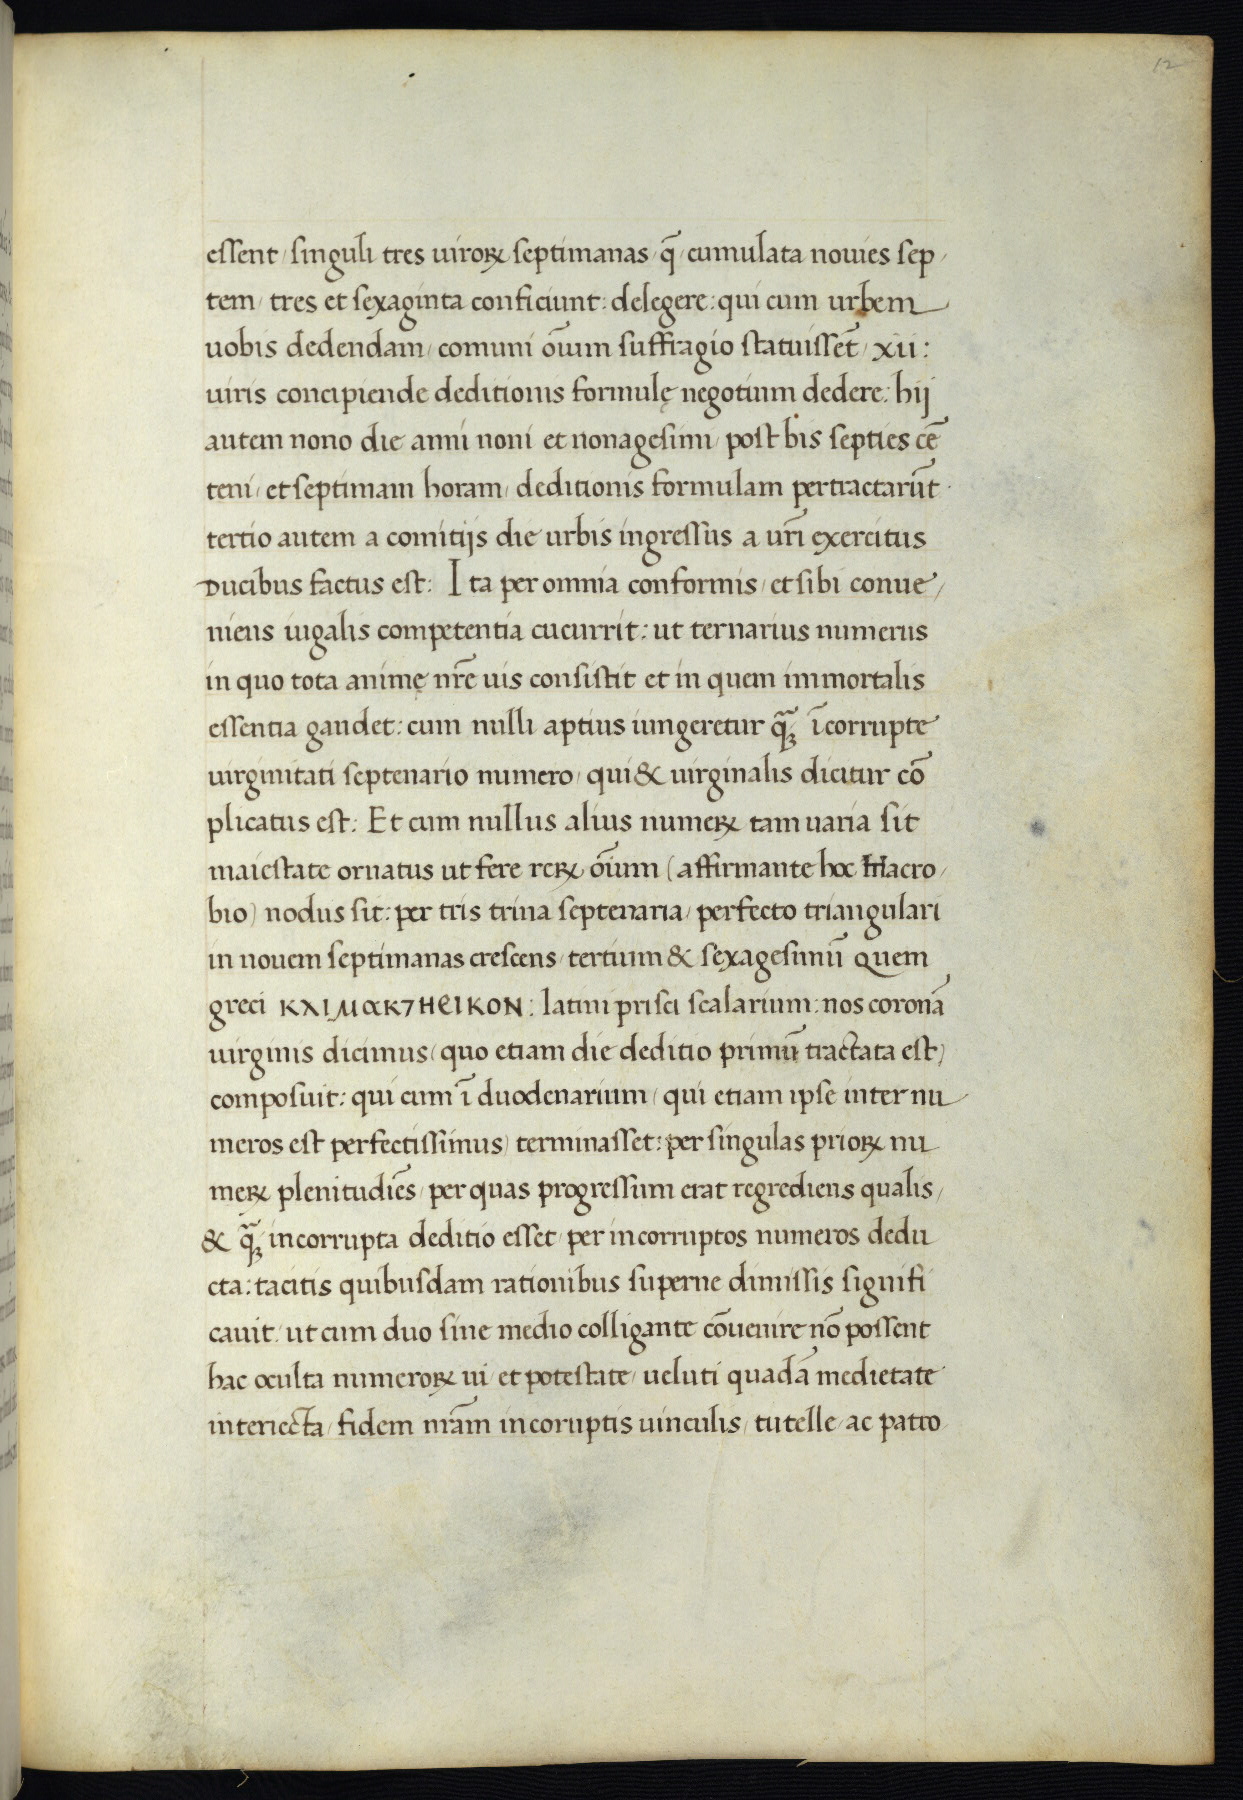 12
essent / singuli tres uiroꝝ septimanas / q̄ / cumulata nouies sep /
tem / tres et sexaginta conficiunt : delegere : qui cum urbem
uobis dedendam / comuni oı̄um suffragio statuissēt / xii :
uiris concipiende deditionis formulę negotium dedere : hij
autem nono die anni noni et nonagesimi / post bis septies cē
teni / et septimam horam / deditionis formulam pertractarūt ·
tertio autem a comitijs die urbis ingressus a ur̄i exercitus
Ducibus factus est : Ita per omnia conformis / et sibi conue /
niens iugalis competentia cucurrit : ut ternarius numerus
in quo tota animę nr̄e uis consistit et in quem immortalis
essentia gaudet : cum nulli aptius iungeretur qꝫ̄ ı̄corrupte
uirginitati septenario numero / qui & uirginalis dicitur cō
plicatus est : Et cum nullus alius numeꝝ tam uaria sit
maiestate ornatus ut fere reꝝ oı̄um ( affirmante hoc Macro /
bio ) nodus sit : per tris trina septenaria / perfecto triangulari
in nouem septimanas crescens / tertium & sexagesimū Quem
greci ΚΛΙΜαΚΤΗΕΙΚΟΝ : latini prisci scalarium : nos coronā
uirginis dicimus ( quo etiam die deditio primū tractata est )
composuit : qui cum ı̄ duodenarium / qui etiam ipse inter nu
meros est perfectissimus ) terminasset : per singulas prioꝝ nu
meꝝ plenitudı̄es / per quas progressum erat regrediens qualis /
& qꝫ̄ incorrupta deditio esset / per incorruptos numeros dedu
cta : tacitis quibusdam rationibus superne dimissis signifi
cauit / ut cum duo sine medio colligante cōuenire nō possent
hac oculta numeroꝝ ui / et potestate / ueluti quadā medietate
interiecta / fidem nr̄am incoruptis uinculis / tutelle / ac patro